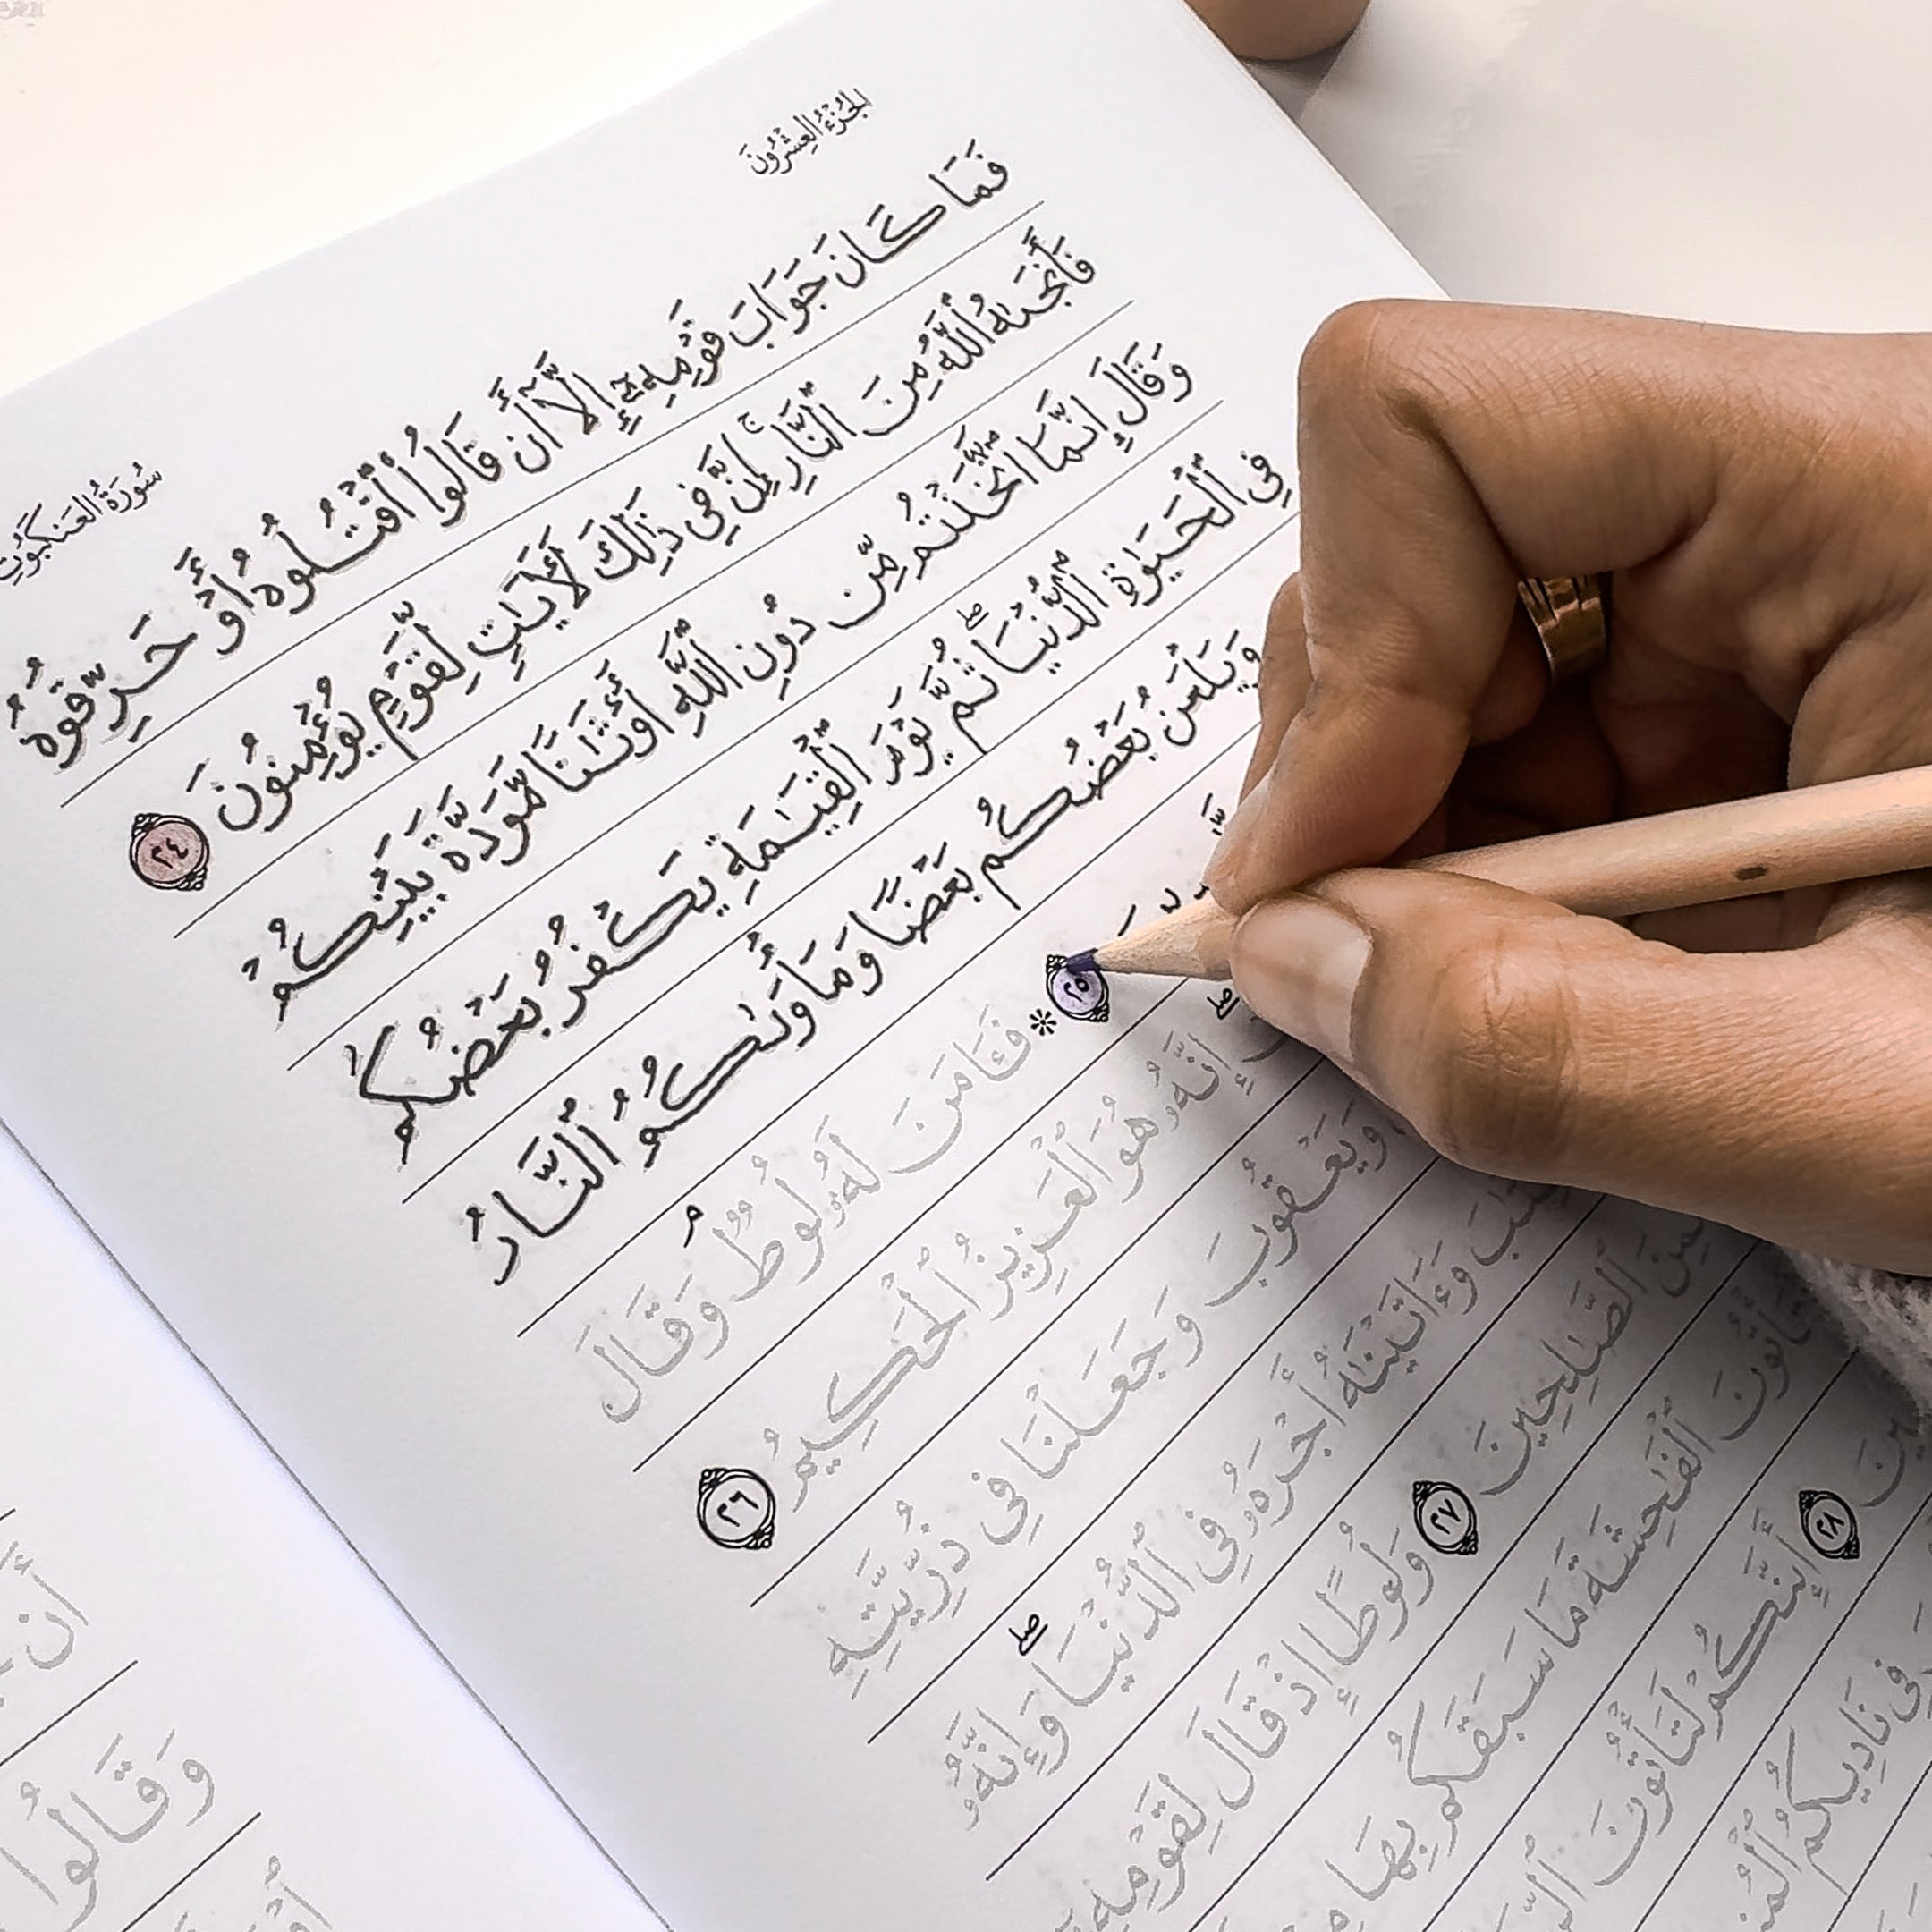 الجُزْءُ العِشْرُونَ
سُورَةُ العَنكَبُوتِ
فَمَا كَانَ جَوَابَ قَوْمِهِۦٓ إِلَّآ أَن قَالُوا۟ ٱقْتُلُوهُ أَوْ حَرِّقُوهُ
فَأَنجَىٰهُ ٱللَّهُ مِنَ ٱلنَّارِ ۚ إِنَّ فِى ذَٰلِكَ لَـَٔايَـٰتٍ لِّقَوْمٍ يُؤْمِنُونَ ٢٤
وَقَالَ إِنَّمَا ٱتَّخَذْتُم مِّن دُونِ ٱللَّهِ أَوْثَـٰنًا مَّوَدَّةَ بَيْنِكُمْ
فِى ٱلْحَيَوٰةِ ٱلدُّنْيَا ۖ ثُمَّ يَوْمَ ٱلْقِيَـٰمَةِ يَكْفُرُ بَعْضُكُم
بِبَعْضٍ وَيَلْعَنُ بَعْضُكُم بَعْضًا وَمَأْوَىٰكُمُ ٱلنَّارُ
٢٥ ۞ فَـَٔامَنَ لَهُۥ لُوطٌ ۘ وَقَالَ
إِنَّهُۥ هُوَ ٱلْعَزِيزُ ٱلْحَكِيمُ ٢٦
وَيَعْقُوبَ وَجَعَلْنَا فِى ذُرِّيَّتِهِ
وَءَاتَيْنَـٰهُ أَجْرَهُۥ فِى ٱلدُّنْيَا ۖ وَإِنَّهُۥ
ٱلصَّـٰلِحِينَ ٢٧ وَلُوطًا إِذْ قَالَ لِقَوْمِهِۦٓ
لَتَأْتُونَ ٱلْفَـٰحِشَةَ مَا سَبَقَكُم بِهَا
٢٨ أَئِنَّكُمْ لَتَأْتُونَ
فِى نَادِيكُمُ
أَن
وَقَالُوا۟